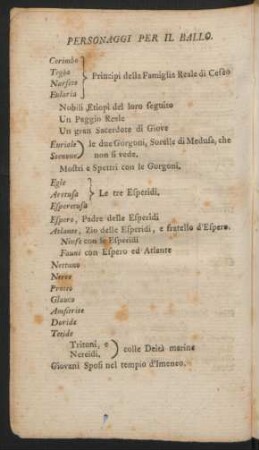 PERSONAGGI PER IL BALLO.
Corimbo
Tegea
Nursito
Eularia
Principi della Famiglia Reale di Cefeo
Nobili Etiopi del loro seguito
Un Paggio Reale
Un gran Sacerdote di Giove
Euriale le due Gorgoni, Sorelle di Medusa, che
Stenone non si vede.
Mostri e Spettri con le Gorgoni,
Egle
Aretusa Le tre Esperidi,
Esperetusa
Espero, Padre delle Esperidi
Atlante, Zio delle Esperidi, e fratello d'Espero.
Ninfe con le Esperidi
Fauni con Espero ed Atlante
Nettuno
Nereo
Proteo
Glauco
Amfitrite
Doride
Tetide
Tritoni, e
Nereidi, colle Deità marine
Giovani Sposi nel tempio d'Imeneo.